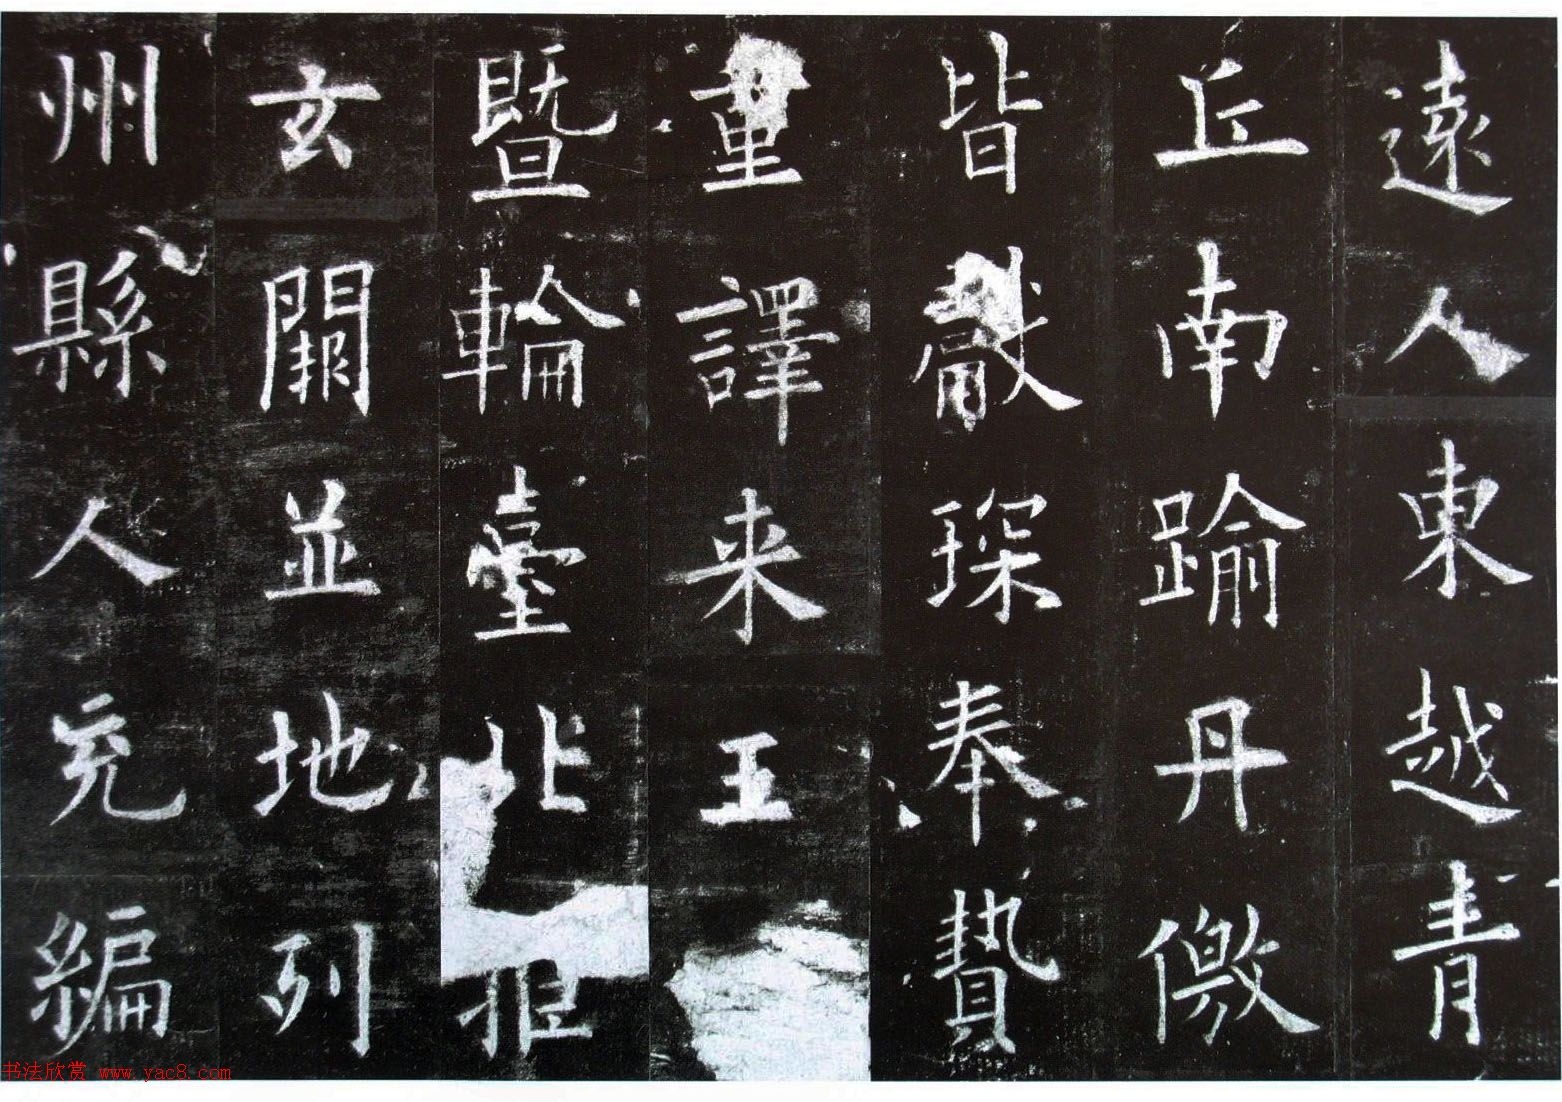 遠人東越青
丘南踰丹儌
皆獻琛奉贄
重譯来王
暨輪臺北拒
玄闕並地列
州縣人充編
书法欣赏 www.yac8.com